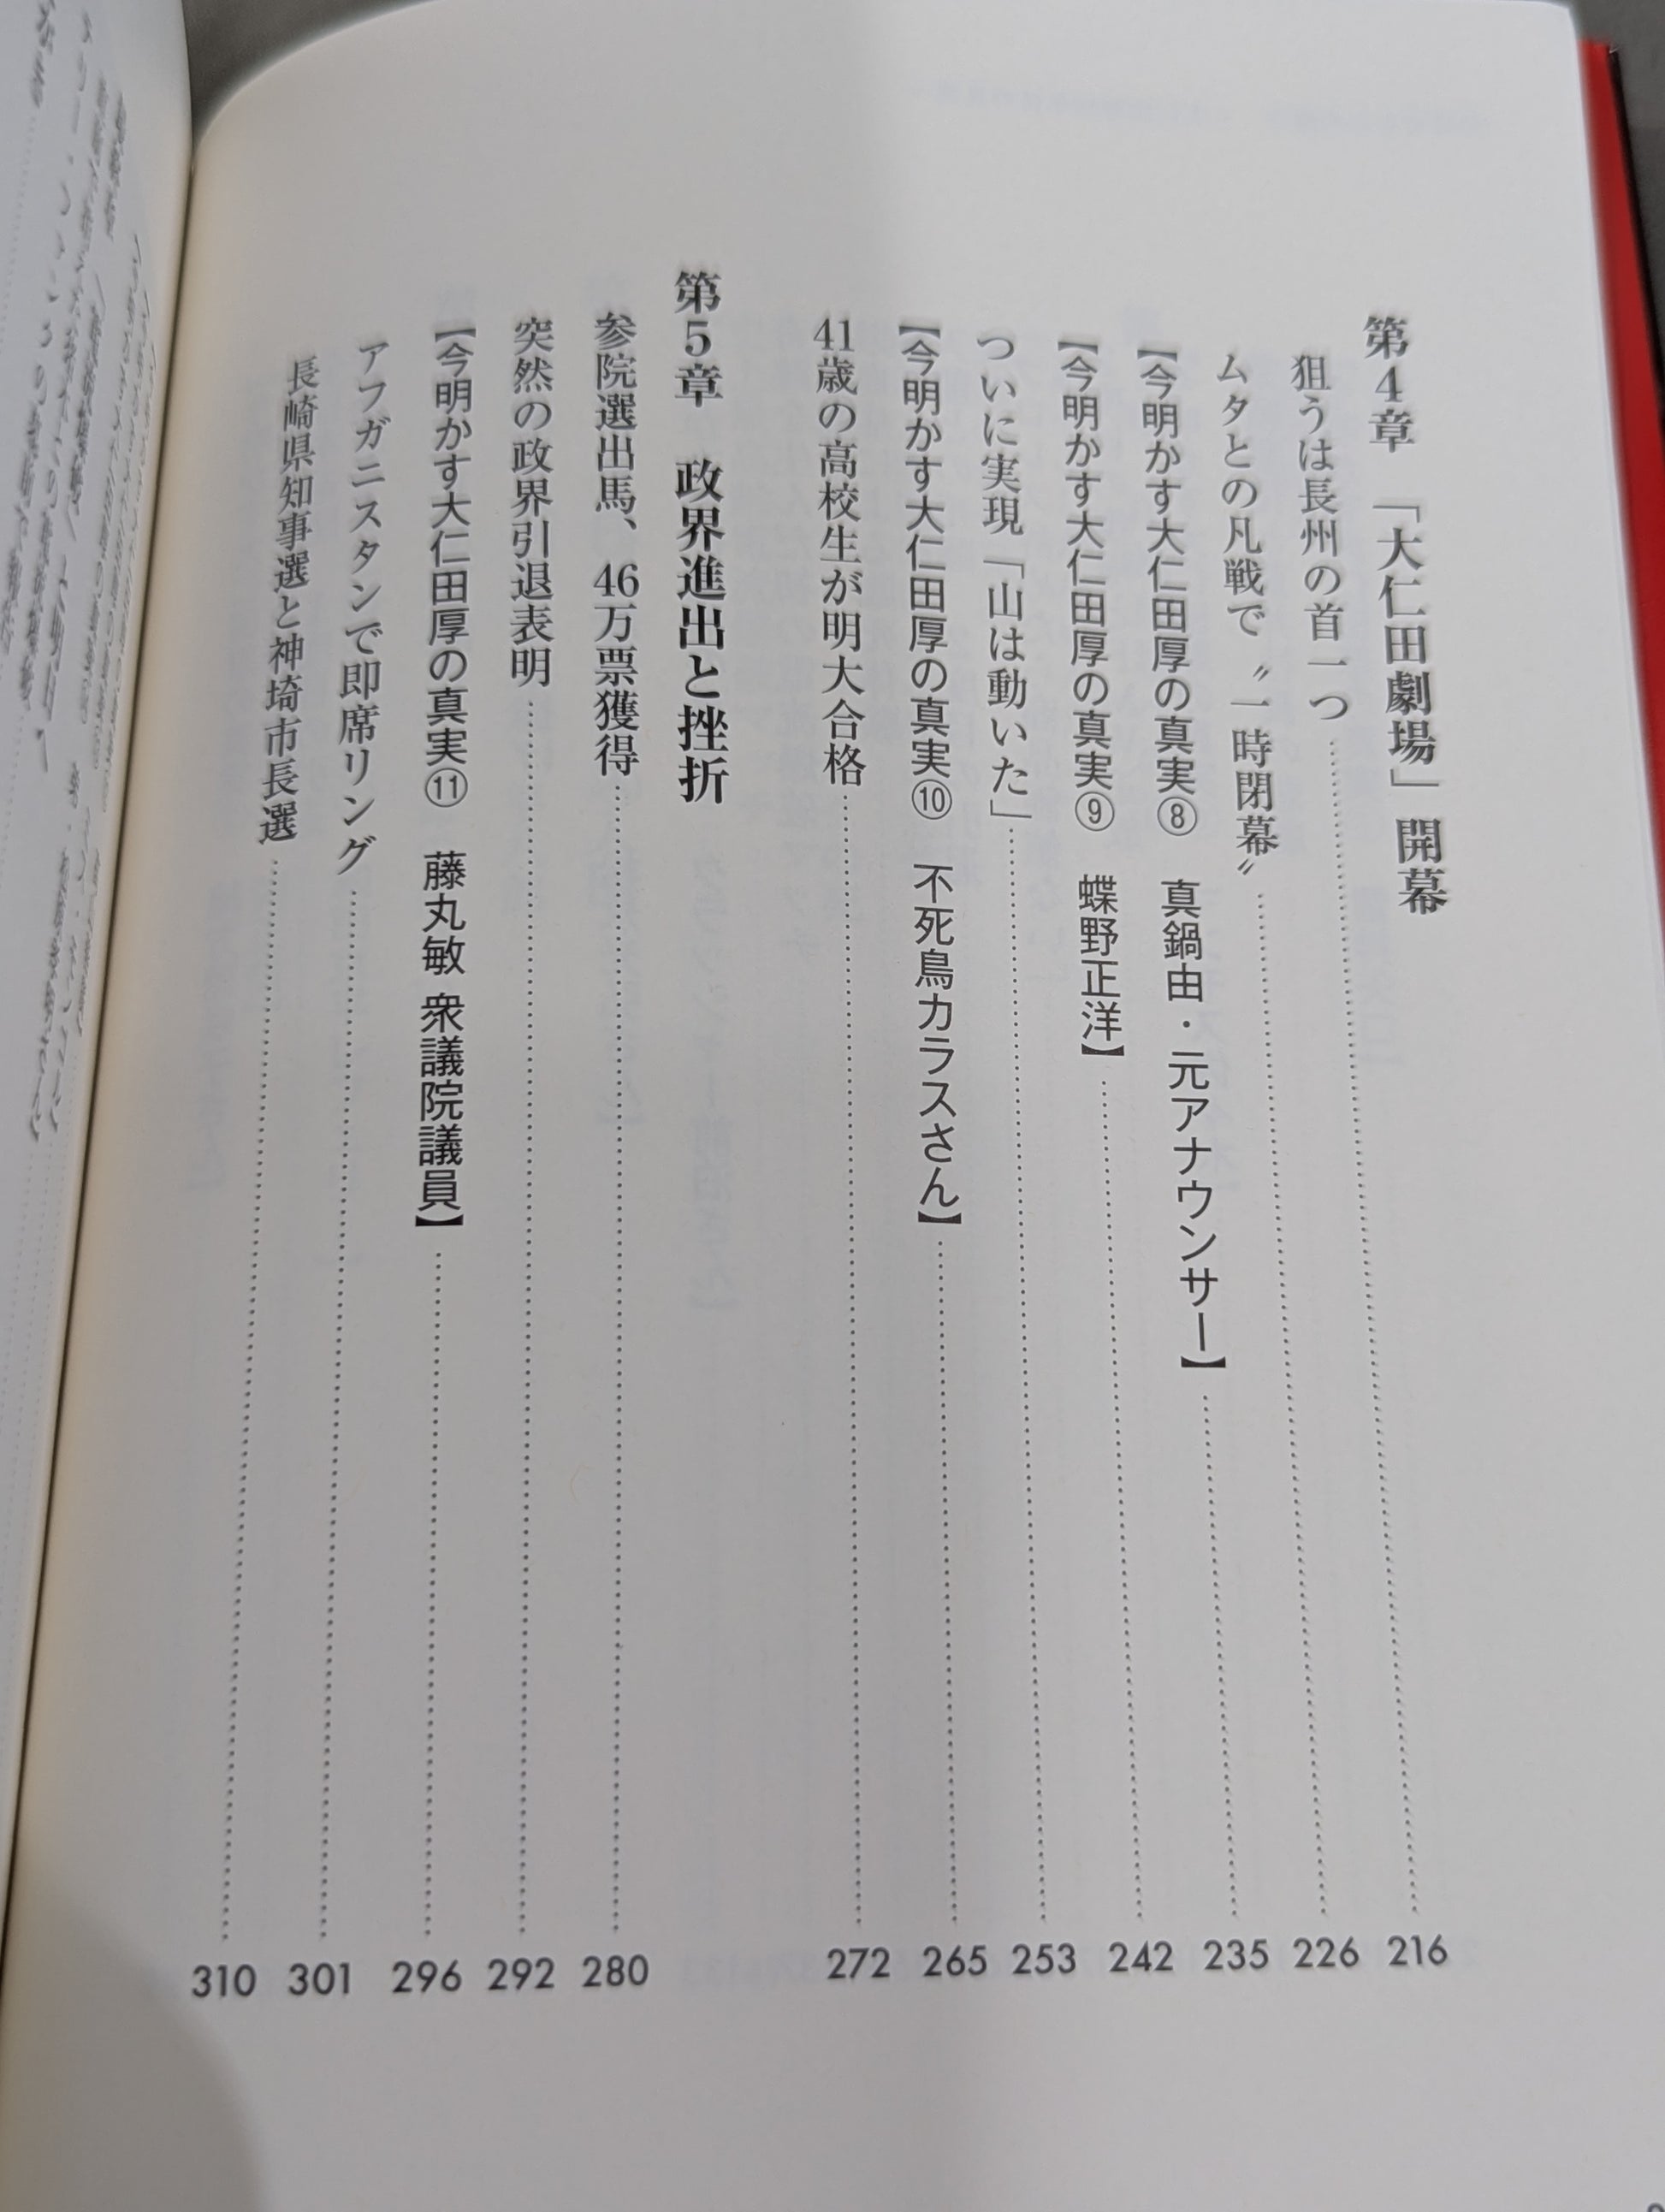 第4章 「大仁田劇場」開幕
狙うは長州の首一つ 216
ムタとの凡戦で〝一時閉幕〟 226
【今明かす大仁田厚の真実⑧ 真鍋由・元アナウンサー】 235
【今明かす大仁田厚の真実⑨ 蝶野正洋】 242
ついに実現「山は動いた」 253
【今明かす大仁田厚の真実⑩ 不死鳥カラスさん】 265
41歳の高校生が明大合格 272
第5章 政界進出と挫折
参院選出馬、46万票獲得 280
突然の政界引退表明 292
【今明かす大仁田厚の真実⑪ 藤丸敏 衆議院議員】 296
アフガニスタンで即席リング 301
長崎県知事選と神埼市長選 310